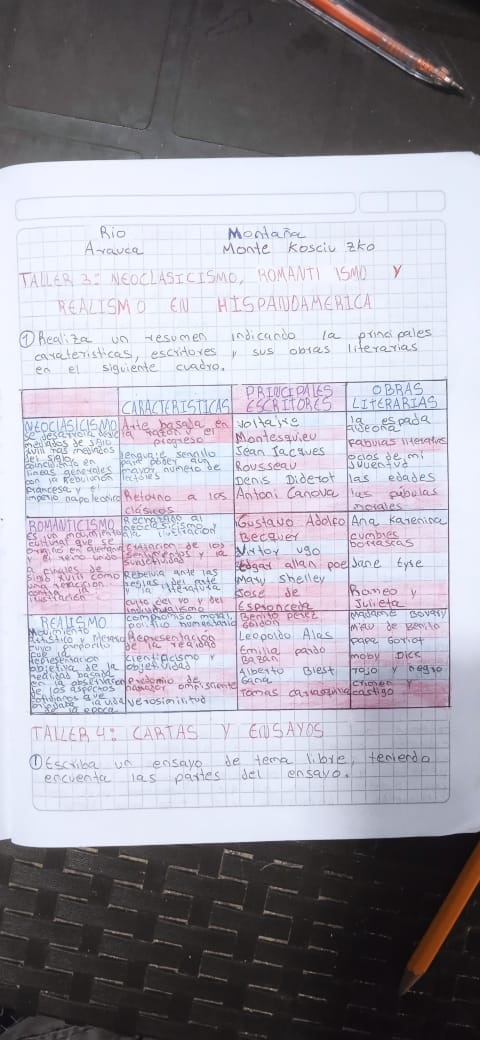 Rio Montaña
Arauca Monte Kosciu zko
TALLER 3: NEOCLASICISMO, ROMANTI ISMO Y
REALISMO EN HISPANOAMERICA
① Realiza un resumen indicando la principales
carateristicas, escritores y sus obras literarias
en el siguiente cuadro.
CARACTERISTICAS
PRINCIPALES
ESCRITORES
OBRAS
LITERARIAS
NEOCLASICISMO
se desarrolla desde
mediados de siglo
XVIII mas mediados
del siglo
coincidiendo en
lineas generales
con la Rebolucion
Francesa y el
imperio napoleonico
Arte basada en
la razon y el
progreso
lenguaje sensillo
para poder aun
mayor numero de
lectores
Retorno a los
clasicos
Voltaire
Montesquieu
Jean Jacques
Rousseau
Denis Diderot
Antoni Canova
la espada
Fabulas literarias
ocios de mi
Juventud
las edades
las fabulas
morales
ROMANTICISMO
es un movimiento
cultural que se
origino en alemania
y el reino unido
a finales de
siglo XVIII como
una reaccion
contra la
ilustracion
Rechazo al
neoclasicismo
la ilustracion
Exaltacion de los
sentimientos y la
subjetividad
Rebelvia ante las
reglas del arte
y la literatura
culto del yo y del
individualismo
Gustavo Adolfo
Becquer
Victor ugo
Edgar allan poe
Mary Shelley
José de
Espronceda
Ana Karenina
cumbres
borrascas
Jane Eyse
Romeo y
Julieta
REALISMO
Movimiento
Artistico y literario
cuyo proposito
fue la
representacion
objetiva de la
realidad basada
en la observacion
de los aspectos
cotidianos que
la vida
de la epoca
compromiso moral
politico humanitario
Representacion
de la realidad
cientificismo y
objetividad
Predomio de
narrador omnisciente
Verosimilitud
Benito perez
Galdon
Leopoldo Alas
Emilia pardo
Bazan
Alberto Blest
Gana
Tomas carrasquilla
Madame Bovary
Miau de Benito
papa Goriot
moby Dick
rojo y negro
Crimen y
castigo
TALLER 4: CARTAS Y ENSAYOS
① Escriba un ensayo de tema libre, teniendo
encuenta las partes del ensayo.